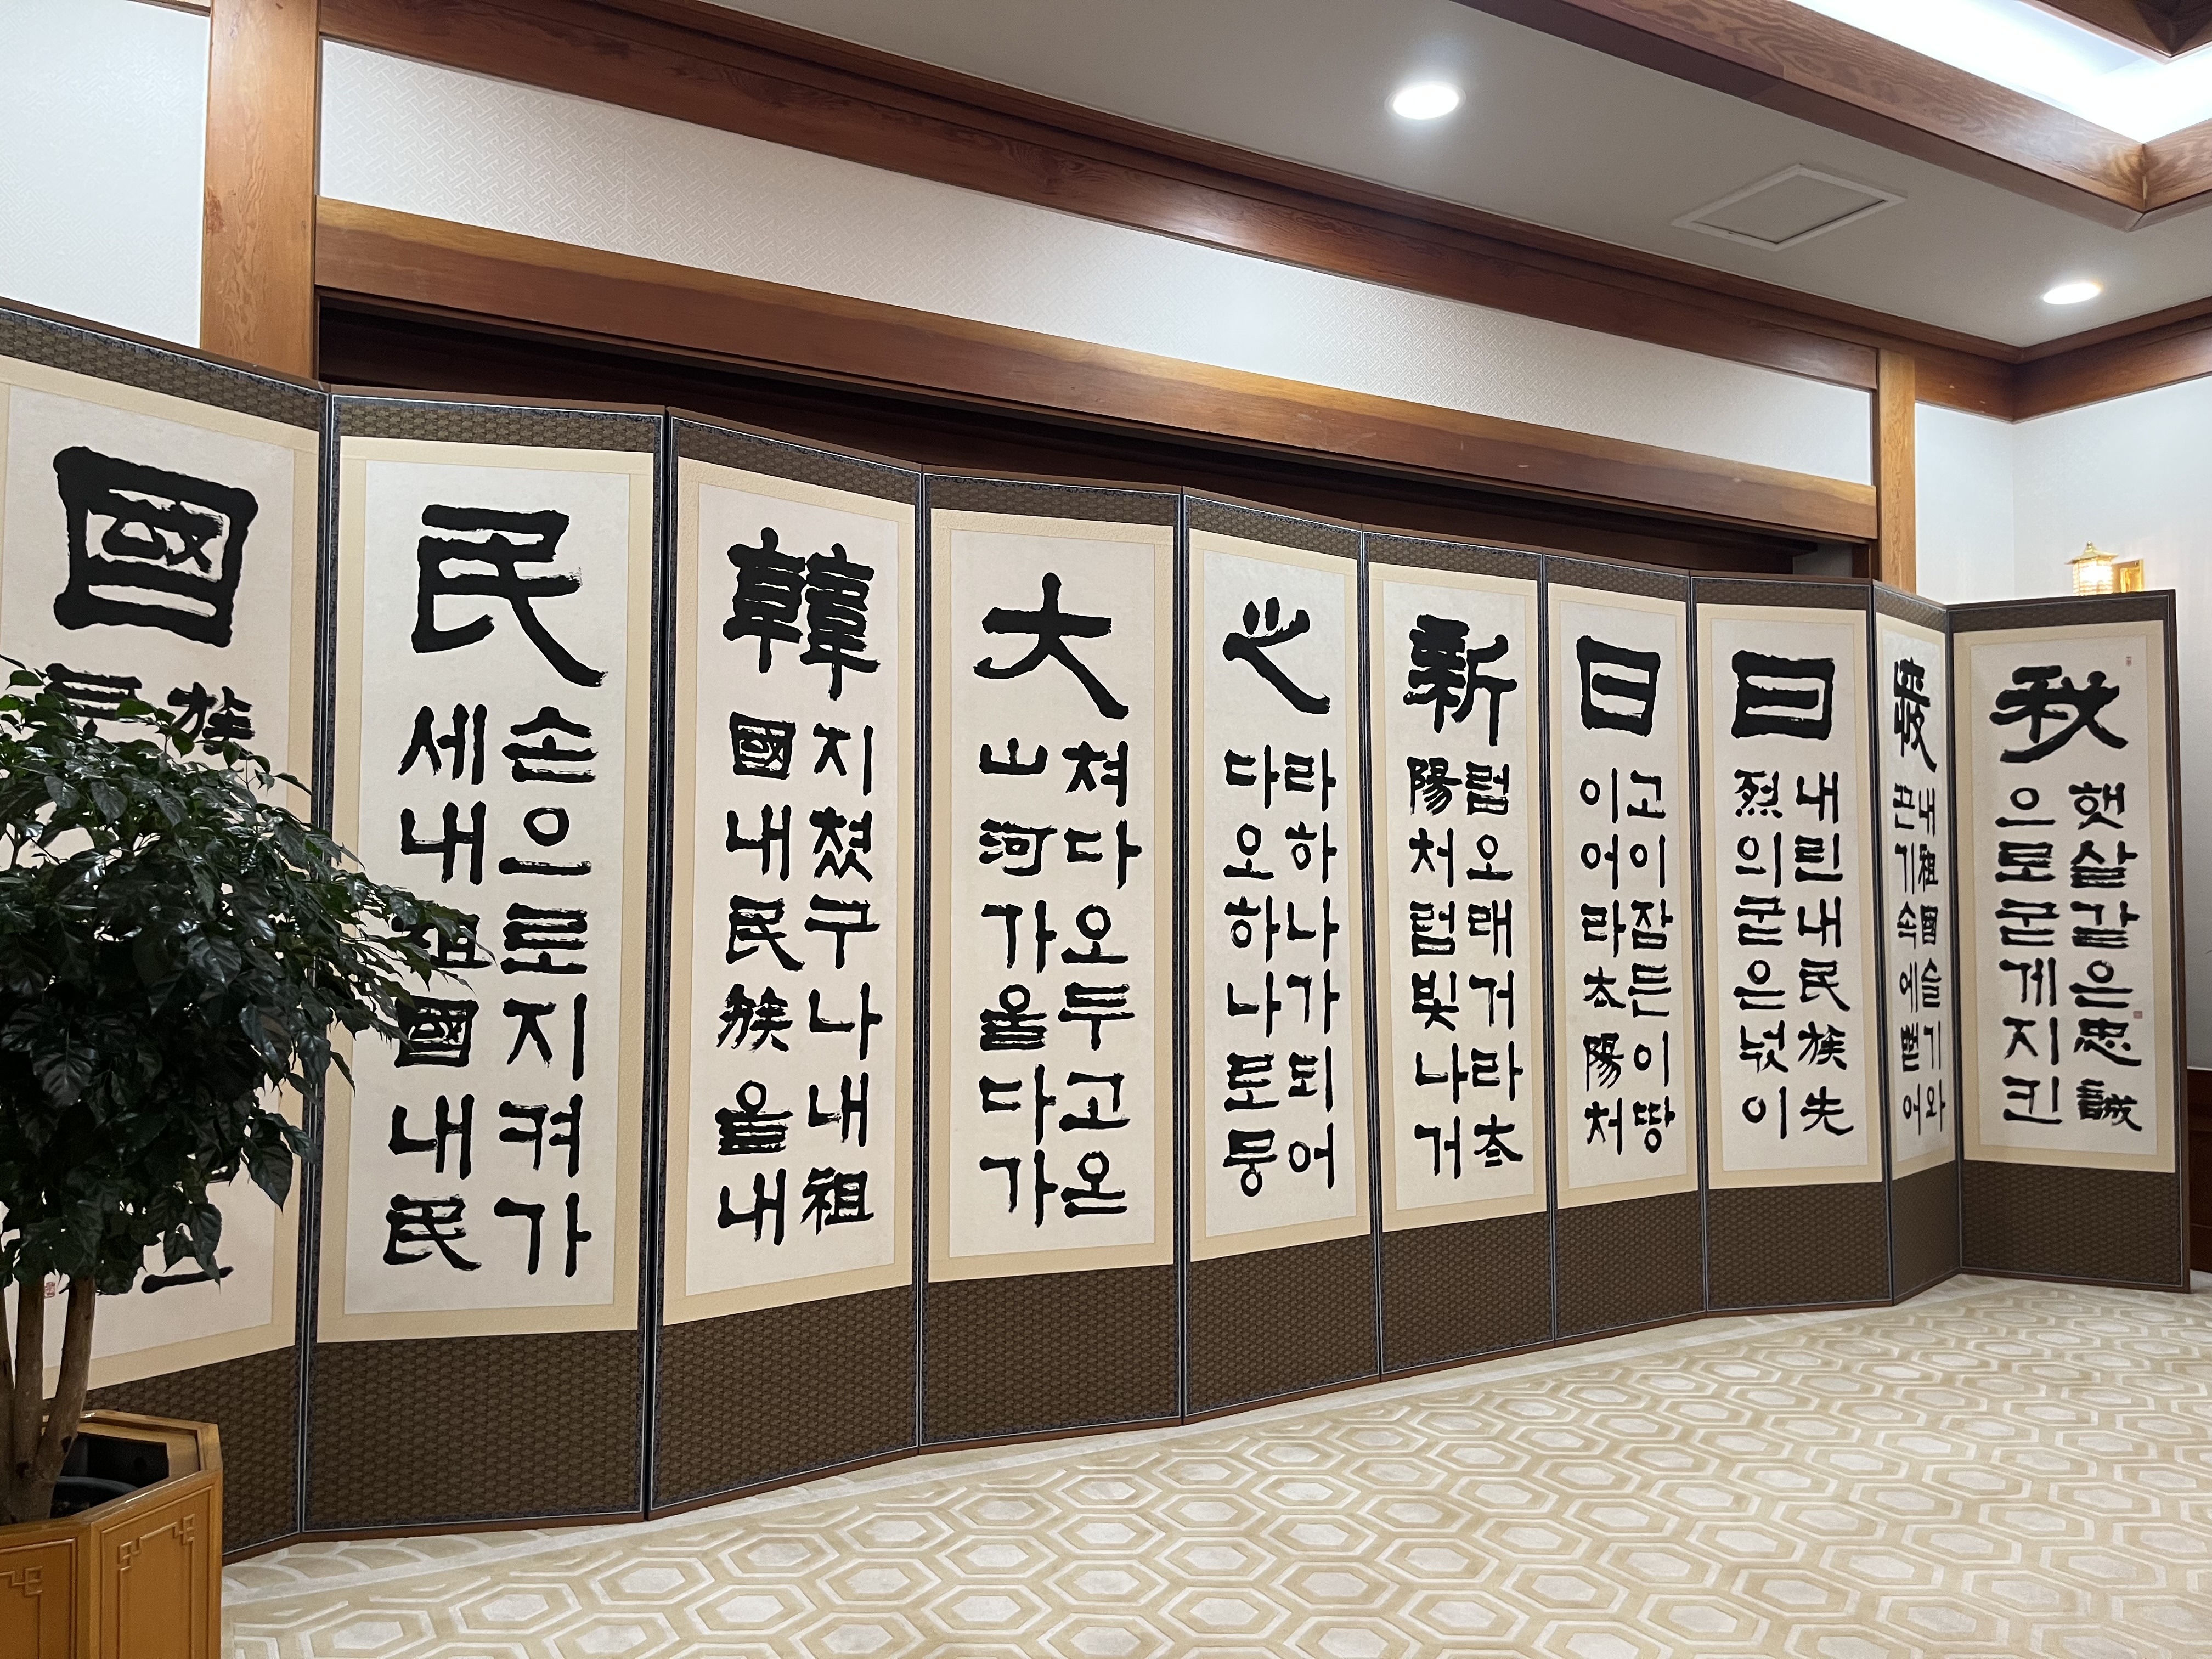 秋
햇살같은忠誠
으로굳게지킨
내祖國슬기와
끈기속에뻗어
曰
내린내民族先
烈의굳은넋이
日
고이잠든이땅
이어라太陽처
新
럼오래거라太
陽처럼빛나거
之
라하나가되어
다오하나토뭉
大
쳐다오두고온
山河가울다가
韓
지쳤구나내祖
國내民族을내
民
손으로지켜가
세내祖國내民
國
族